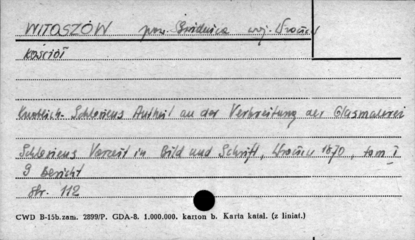 WITOSZÓW pow. Świdnica woj. Wrocław
KOŚCIÓŁ
Schlesiens Antheil an der Verbreitung der Glasmalerei
Schlesiens Vorzeit in Bild und Schrift, Wrocław 1870, tom I
9 Bericht
str. 112
CWD B-15b. zam. 2899/P. GDA-8. 1.000.000. karton b. Karta katal. (z liniat.)